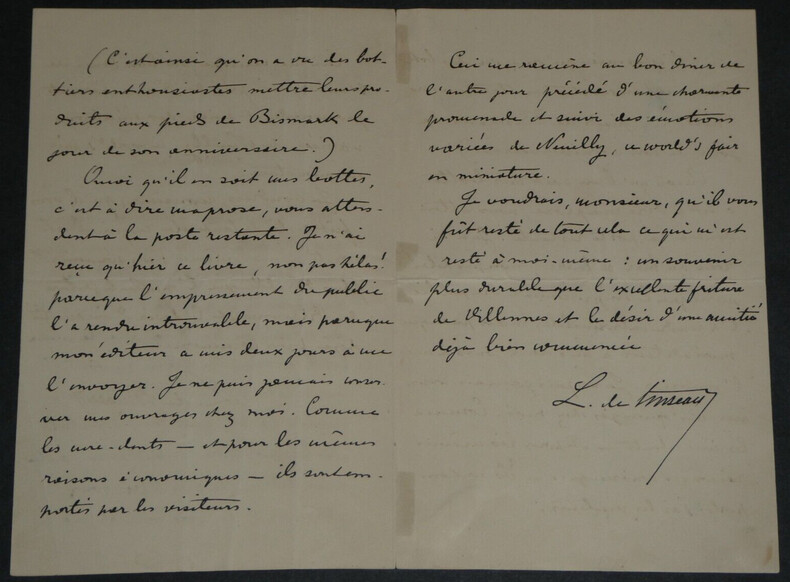 (C'est ainsi qu'on a vu des bot-
tiers enthousiastes mettre leurs pro-
duits aux pieds de Bismark le
jour de son anniversaire.)
Quoi qu'il en soit mes bottes,
c'est à dire ma prose, vous atten-
dent à la poste restante. Je n'ai
reçu qu'hier ce livre, non pas hélas!
parce que l'empressement du public
l'a rendu introuvable, mais parce que
mon éditeur a mis deux jours à me
l'envoyer. Je ne puis jamais conser-
ver mes ouvrages chez moi. Comme
les cure-dents — et pour les mêmes
raisons économiques — ils sont em-
portés par les visiteurs.
Ceci me ramène au bon diner de
l'autre jour précédé d'une charmante
promenade et suivi des émotions
variées de Neuilly, ce world's fair
en miniature.
Je voudrais, monsieur, qu'il vous
fût resté de tout cela ce qui m'est
resté à moi-même : un souvenir
plus durable que l'excellente friture
de Villennes et le désir d'une amitié
déjà bien commencée
L. de Tinseau